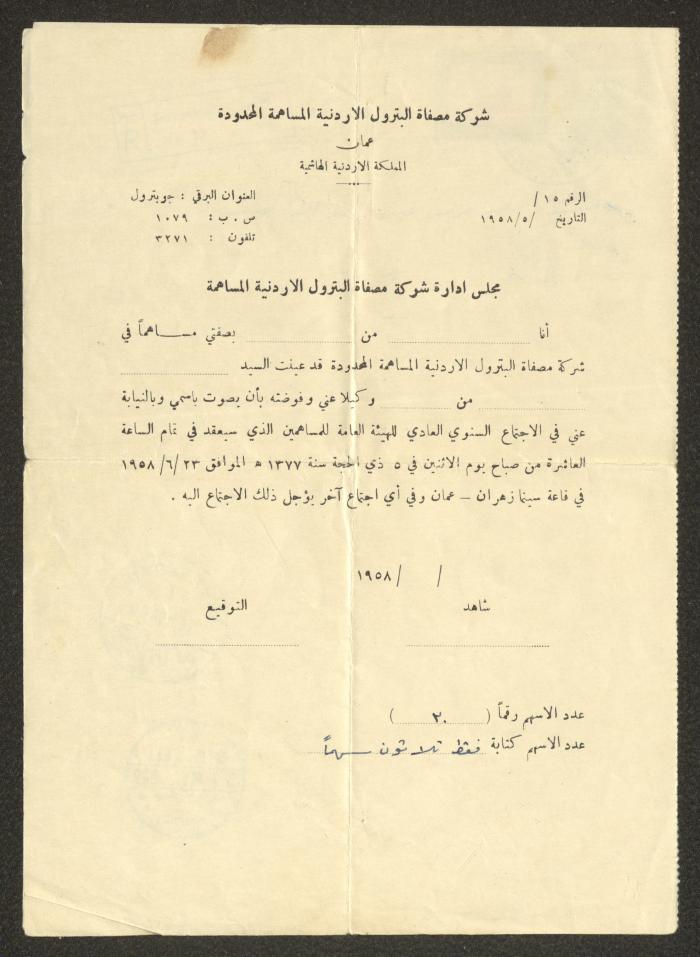 شركة مصفاة البترول الاردنية المساهمة المحدودة
عمان
المملكة الاردنية الهاشمية
الرقم ١٥/
العنوان البرقي : جوبترول
التاريخ /٥/١٩٥٨
ص . ب : ١٠٧٩
تلفون : ٣٢٧١
مجلس ادارة شركة مصفاة البترول الاردنية المساهمة
أنا من بصفتي مساهماً في
شركة مصفاة البترول الاردنية المساهمة المحدودة قد عينت السيد
من وكيلا عني وفوضته بأن يصوت باسمي وبالنيابة
عني في الاجتماع السنوي العادي للهيئة العامة للمساهمين الذي سيعقد في تمام الساعة
العاشرة من صباح يوم الاثنين في ٥ ذي الحجة سنة ١٣٧٧ ه الموافق ٢٣/٦/١٩٥٨
في قاعة سينما زهران – عمان وفي أي اجتماع آخر يؤجل ذلك الاجتماع اليه .
/ /١٩٥٨
شاهد التوقيع
عدد الاسهم رقماً ( ٣٠ )
عدد الاسهم كتابة فقط ثلاثون سهماً